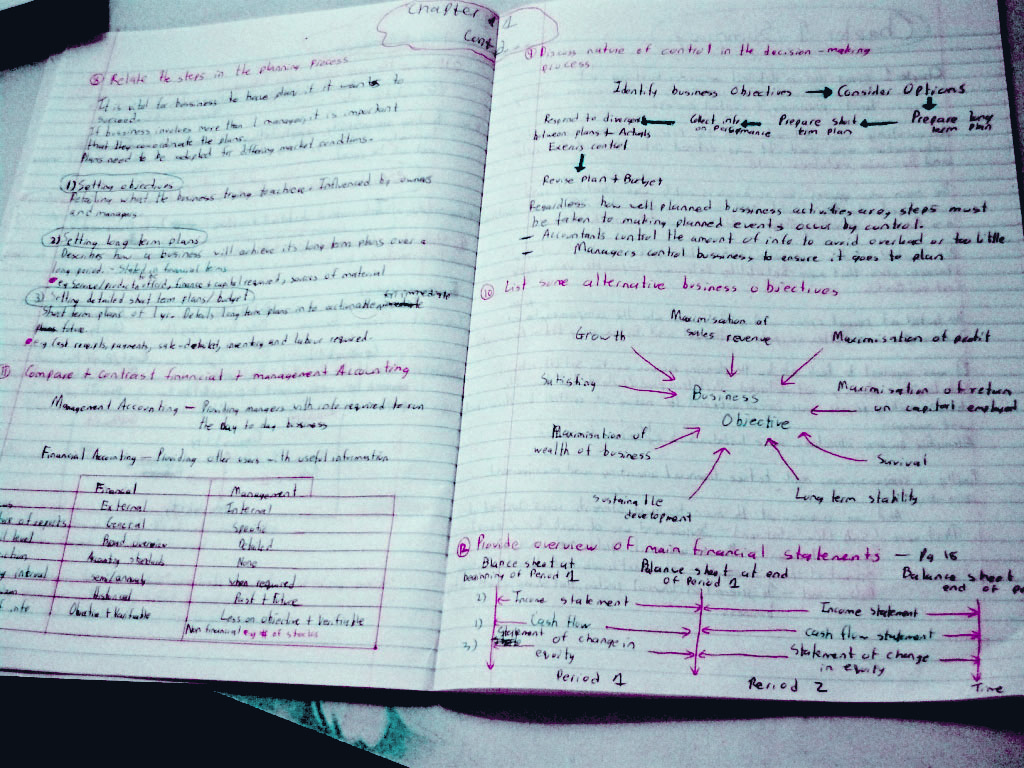 Chapter 1
Cont
⑧ Relate the steps in the planning process
It is vital for business to have plan if it wants to
succeed.
If bussiness involves more than 1 manager, it is important
that they co-ordinate the plans.
Plans need to be adapted for differing market conditions.
1) Setting objectives
what the business trying to achieve. Influenced by owners
and managers
2) Setting long term plans
Describes how a business will achieve its long term plans over a
long period. - Stated in financial terms
eg service/products offered, finance + capital required, sources of material
3) Setting detailed short term plans / budget
Short term plans of 1 yr. Details long term plans into actionable immediate
future.
eg Cash receipts, payments, sale-detailed, inventory and labour required.
⑪ Compare + contrast financial + management Accounting
Management Accounting - Providing mangers with info required to run
the day to day business
Financial Accounting - Providing other users with useful information
Financial Management
External Internal
of reports General Specific
level Broad overview Detailed
Accounting standards None
interval when required
Historical Past + Future
of info Objective + Verifiable Less on objective + Verifiable
Non financial eg # of stocks
⑨ Discuss nature of control in the decision-making
process
Identify business Objectives → Consider Options
Respond to divergence ← Collect info ← Prepare short ← Prepare long
between plans + Actuals on performance term plan term plan
Exercis control
Revise plan + Budget
Regardless how well planned bussiness activities are, steps must
be taken to making planned events occur by control.
- Accountants control the amount of info to avoid overload or too little
- Managers control bussiness to ensure it goes to plan
⑩ List some alternative business objectives
Maximisation of
sales revenue
Growth
Maximisation of profit
Satisfing
Business
Objective
Maximisation of return
on capital employed
Maximisation of
wealth of business
Survival
Sustainable
development
Long term stablity
⑫ Provide overview of main financial statements - Pg 18
Blance sheet at
beginning of Period 1
Balance sheet at end
of Period 1
Balance sheet
end of
2) Income statement Income statement
1) Cash flow cash flow statement
3) Statement of change in
equity
Statement of change
in equity
Period 1 Period 2 Time